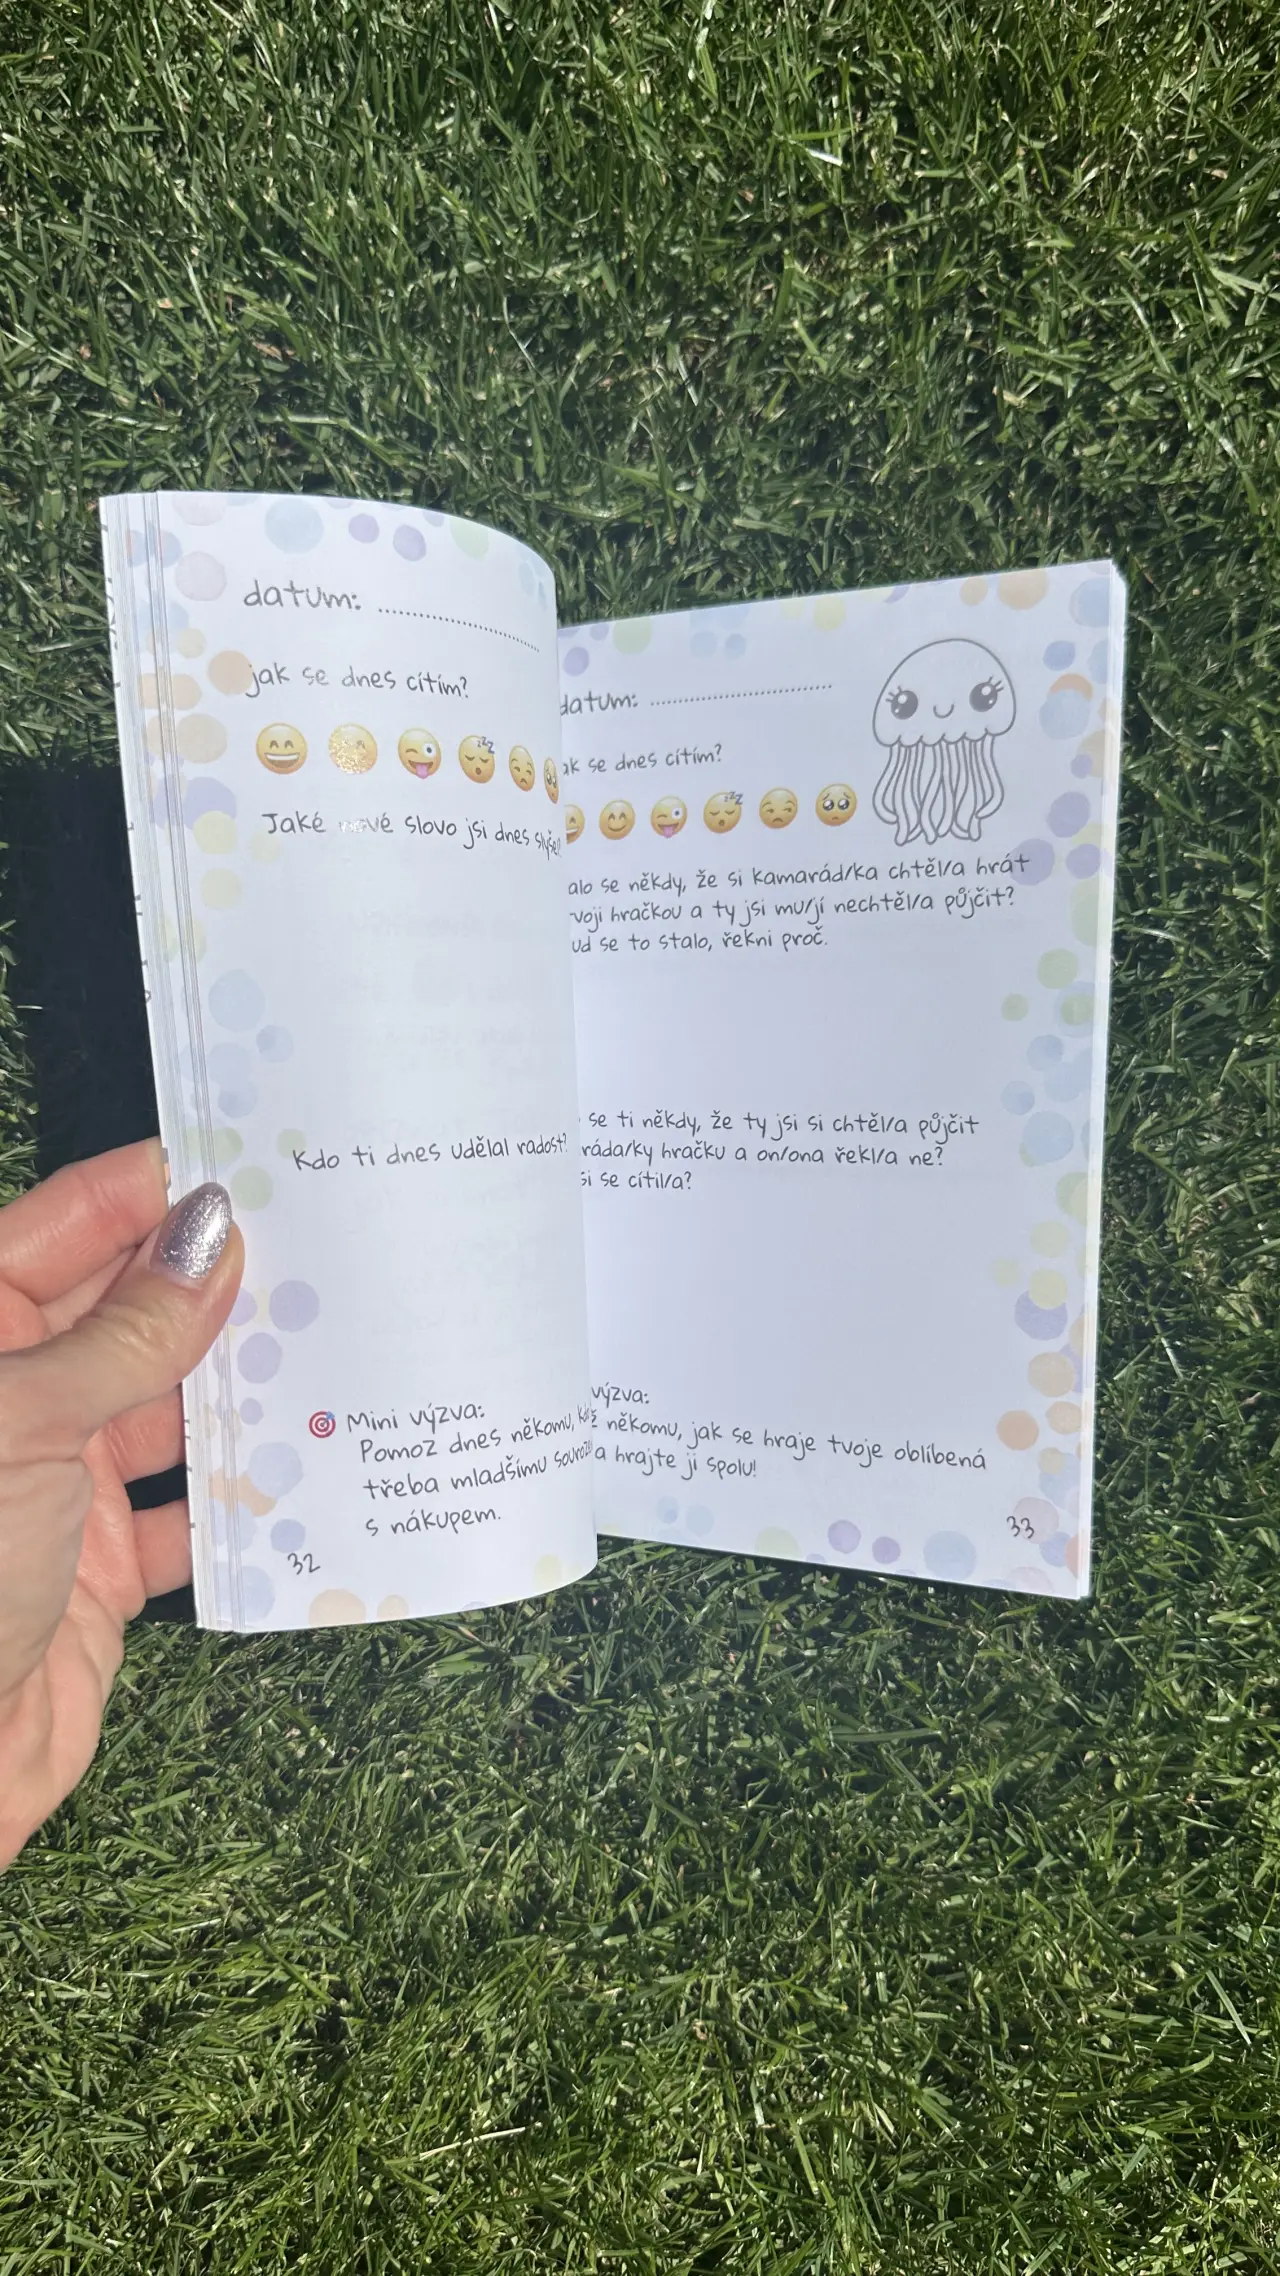 datum:
jak se dnes cítím?
Jaké nové slovo jsi dnes
Kdo ti dnes udělal radost?
Mini výzva:
Pomoz dnes někomu,
třeba mladšímu
s nákupem.
32
datum:
se dnes cítím?
se někdy, že si kamarád/ka chtěl/a hrát
hračkou a ty jsi mu/jí nechtěl/a půjčit?
se to stalo, řekni proč.
se ti někdy, že ty jsi si chtěl/a půjčit
hračku a on/ona řekl/a ne?
se cítil/a?
výzva:
někomu, jak se hraje tvoje oblíbená
a hrajte ji spolu!
33